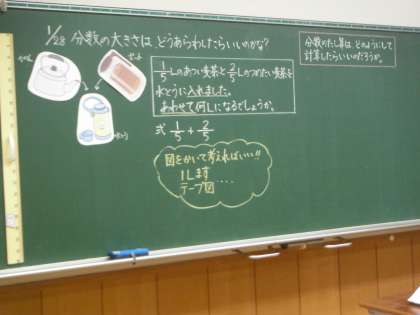 1/28 分数の大きさは、どうあらわしたらいいのかな?
分数のたし算は、どのようにして
計算したらいいのだろうか。
1/5Lのあつい麦茶と2/5Lのつめたい麦茶を
水とうに入れました。
あわせて何Lになるでしょうか。
式 1/5 + 2/5
図をかいて考えればいい!!
1Lます
テープ図 ....